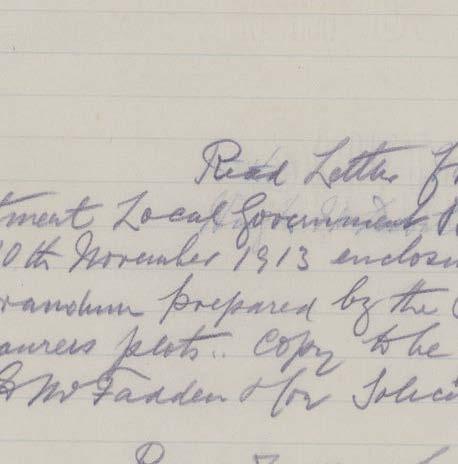 Read Letter
tment Local Government
10th November 1913 enclosin
randum prepared by the
ourers plots.. Copy to be
McFadden & for Solici